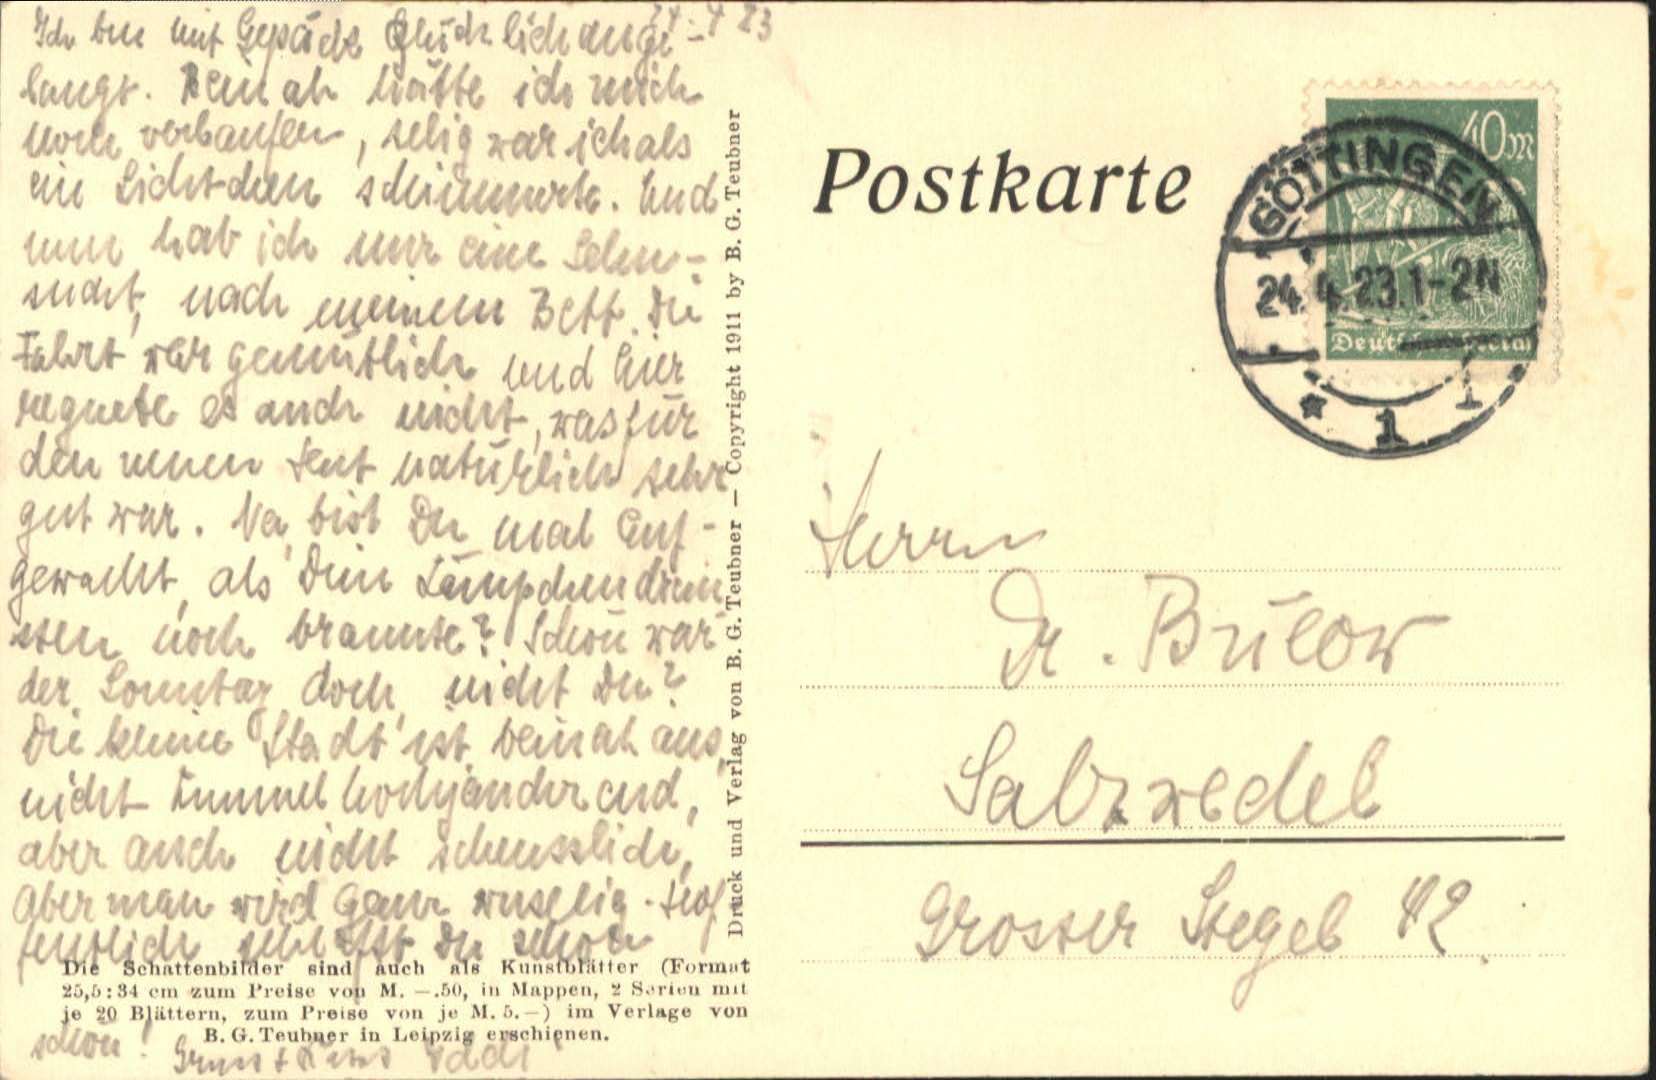 24.4.23
Ich bin mit Gepäck glücklich ange-
langt. Beinah hätte ich mich
noch verlaufen, selig war ich als
ein Lichtchen schimmerte. Und
nun hab ich nur eine Sehn-
sucht, nach meinem Bett. Die
Fahrt war gemütlich und hier
regnete es auch nicht, was für
den neuen Hut natürlich sehr
gut war. Na, bist Du mal auf-
gewacht, als Dein Lämpchen
noch brannte? Schön war
der Sonntag doch, nicht Du?
Die kleine Stadt ist beinah aus,
nicht
aber auch nicht scheusslich,
aber man wird ganz wuselig. Hof
fentlich schläfst Du schon
schön! Gruss + Kuss
Die Schattenbilder sind auch als Kunstblätter (Format
25,5:34 cm zum Preise von M. —.50, in Mappen, 2 Serien mit
je 20 Blättern, zum Preise von je M. 5.—) im Verlage von
B. G. Teubner in Leipzig erschienen.
Druck und Verlag von B. G. Teubner — Copyright 1911 by B. G. Teubner
Postkarte
40 M
Deutsches Reich
GÖTTINGEN
24.4.23.1-2N
* 1 1
Herrn
Dr. Bülow
Salzwedel
Grosser Stegel 42